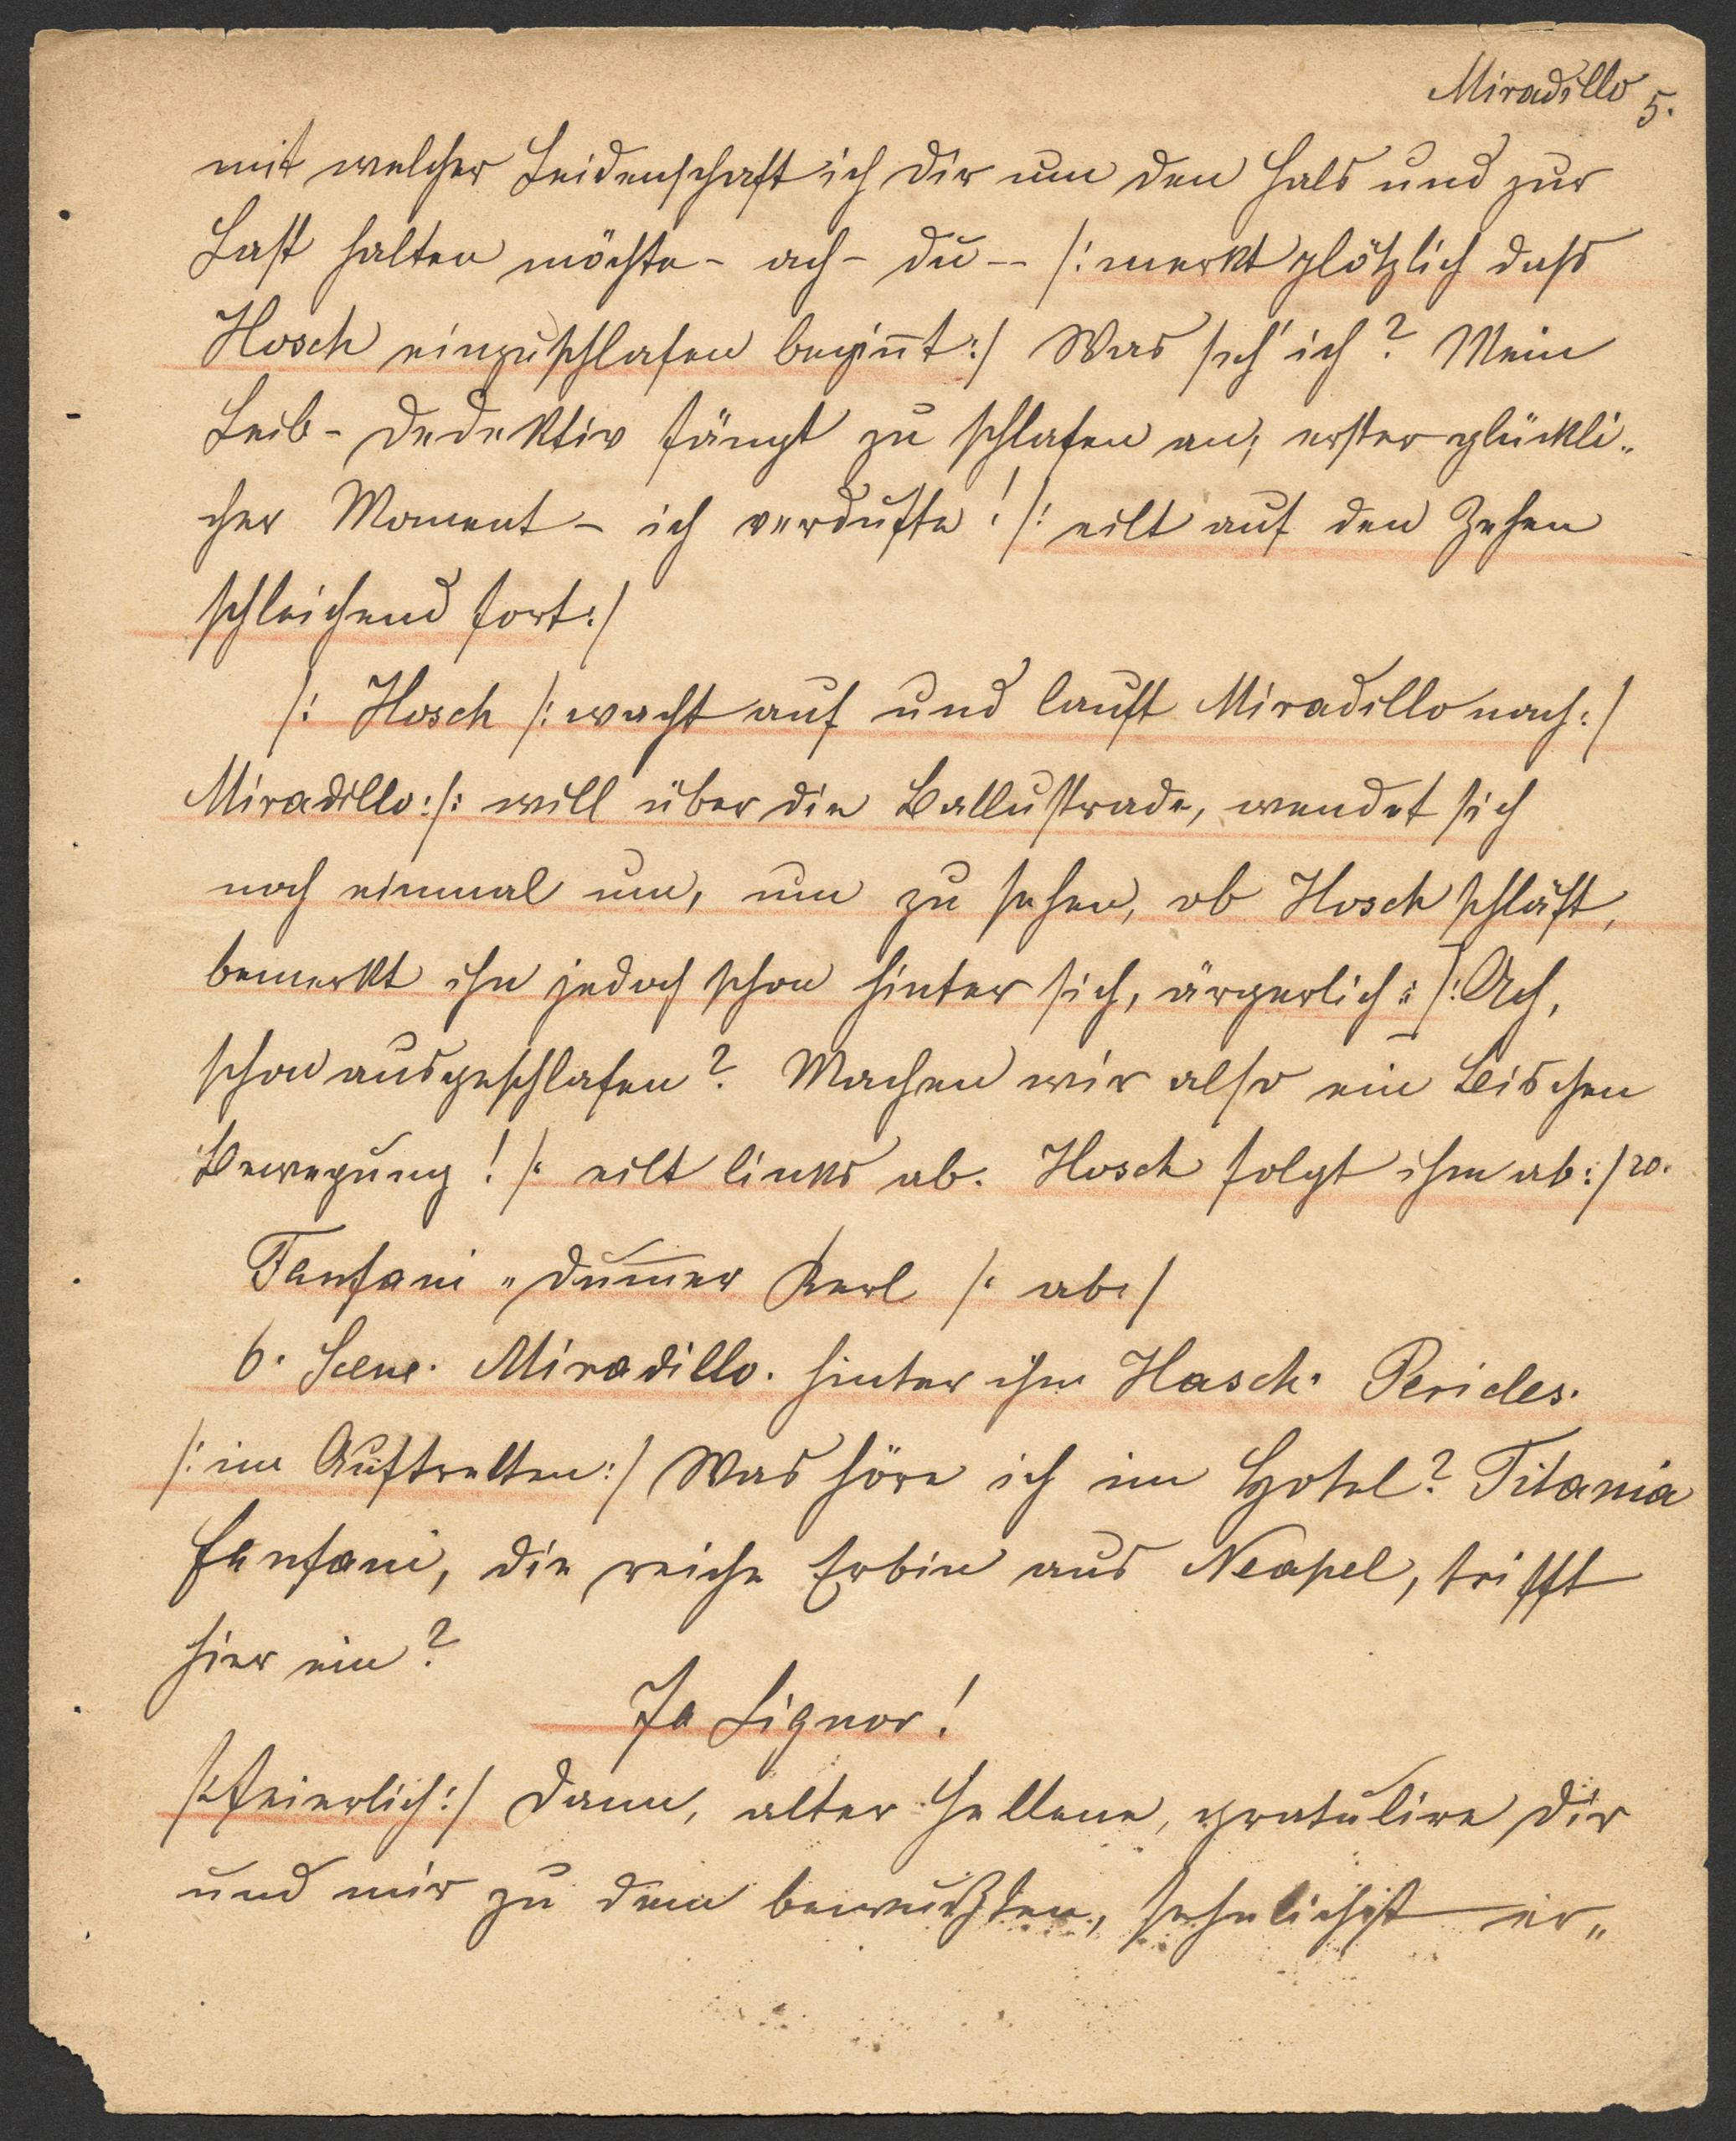 Miradillo 5.
mit welcher Leidenschaft ich dir um den Hals und zur
Last halten möchte - ach - du -- /: merkt plötzlich dass
Hosch einzuschlafen beginnt:/ Was seh' ich? Mein
Leib - Dedektiv fängt zu schlafen an; erster glückli„
cher Moment - ich verdufte! /: eilt auf den Zehen
schleichend fort:/
/: Hosch /: wacht auf und lauft Miradillo nach:/
Miradillo:/: will über die Ballustrade, wendet sich
noch einmal um, um zu sehen, ob Hosch schläft,
bemerkt ihn jedoch schon hinter sich, ärgerlich:/: Ach,
schon ausgeschlafen? Machen wir also ein Bischen
Bewegung! /: eilt links ab. Hosch folgt ihm ab:/ 20.
Fanfani „ dum̅er Kerl /: ab:/
6. Scene. Miradillo. hinter ihm Hasch. Pericles.
/: im Auftretten:/ Was höre ich im Hotel? Titania
Fanfani, die reiche Erbin aus Neapel, trifft
hier ein?
Ja Signor!
/: feierlich:/ Dann, alter Hellene, gratulire dir
und mir zu dem bewußten, sehnlichst er„